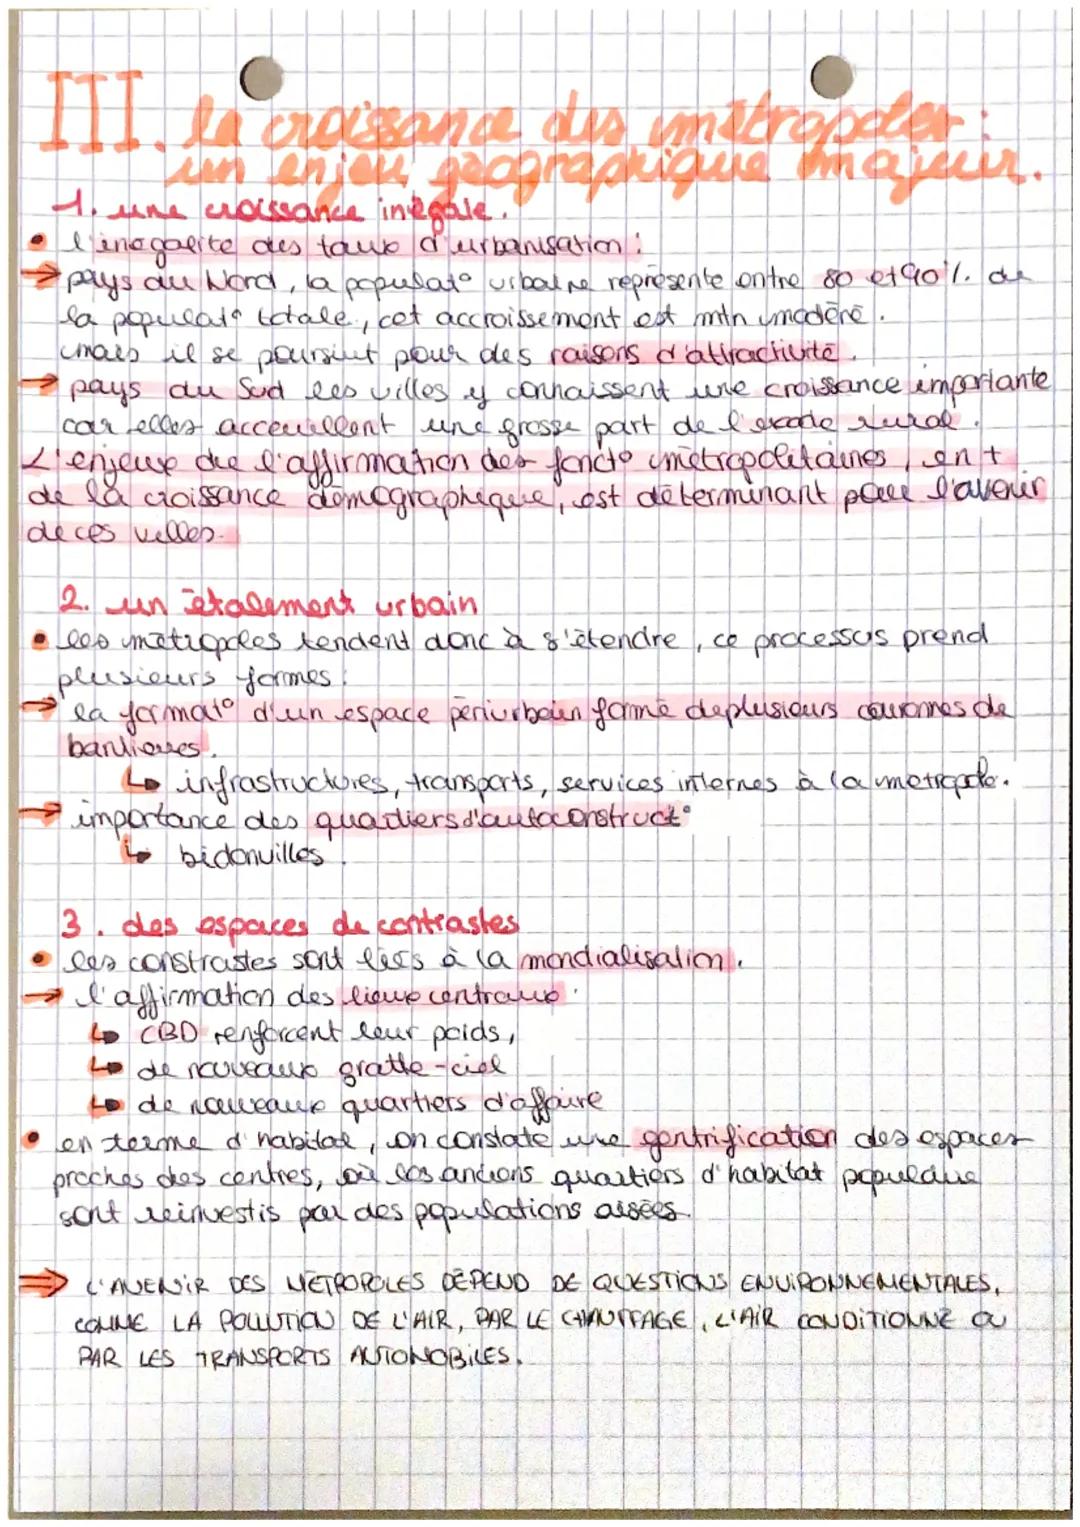 III. la croissance des métropoles :
un enjeu géographique majeur.
1. une croissance inégale.
• l'inégalité des taux d'urbanisation :
→ pays du Nord, la populat° urbaine représente entre 80 et 90 % de
la populat° totale, cet accroissement est mtn modéré.
mais il se poursuit pour des raisons d'attractivité.
→ pays du Sud les villes y connaissent une croissance importante
car elles acceuillent une grosse part de l'exode rural.
L'enjeux de l'affirmation des foncto métropolitaines, en +
de la croissance démographique, est déterminant pour l'avenir
de ces villes.
2. un étalement urbain
• les métropoles tendent donc à s'étendre, ce processus prend
plusieurs formes :
→ la format° d'un espace périurbain formé de plusieurs couronnes de
banlieues.
↳ infrastructures, transports, services internes à la métropole.
→ importance des quartiers d'autoconstruct°
↳ bidonvilles.
3. des espaces de contrastes
• les constrastes sont liés à la mondialisation.
→ l'affirmation des lieux centraux :
↳ CBD renforcent leur poids,
↳ de nouveaux gratte-ciel
↳ de nouveaux quartiers d'affaire
• en terme d'habitat, on constate une gentrification des espaces
proches des centres, où les anciens quartiers d'habitat populaire
sont réinvestis par des populations aisées.
⇒ L'AVENIR DES MÉTROPOLES DÉPEND DE QUESTIONS ENVIRONNEMENTALES,
COMME LA POLLUTION DE L'AIR, PAR LE CHAUFFAGE, L'AIR CONDITIONNÉ OU
PAR LES TRANSPORTS AUTOMOBILES.